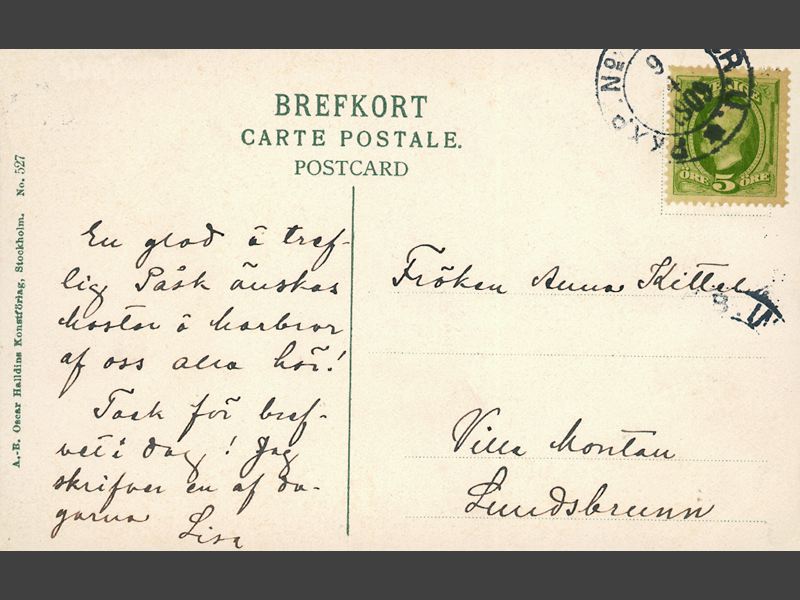 BREFKORT
CARTE POSTALE.
POSTCARD
A.-B. Oscar Halldins Konstförlag, Stockholm. No. 527
En glad å tref-
lig Påsk önskas
Moster å Morbror
af oss alla här!
Tack för bref-
vet i dag! Jag
skrifver en af da-
garna Lisa
SVERIGE
ÖRE 5 ÖRE
PKXP. No
Fröken Anna Kittel
U.
Villa Montan
Lundsbrunn